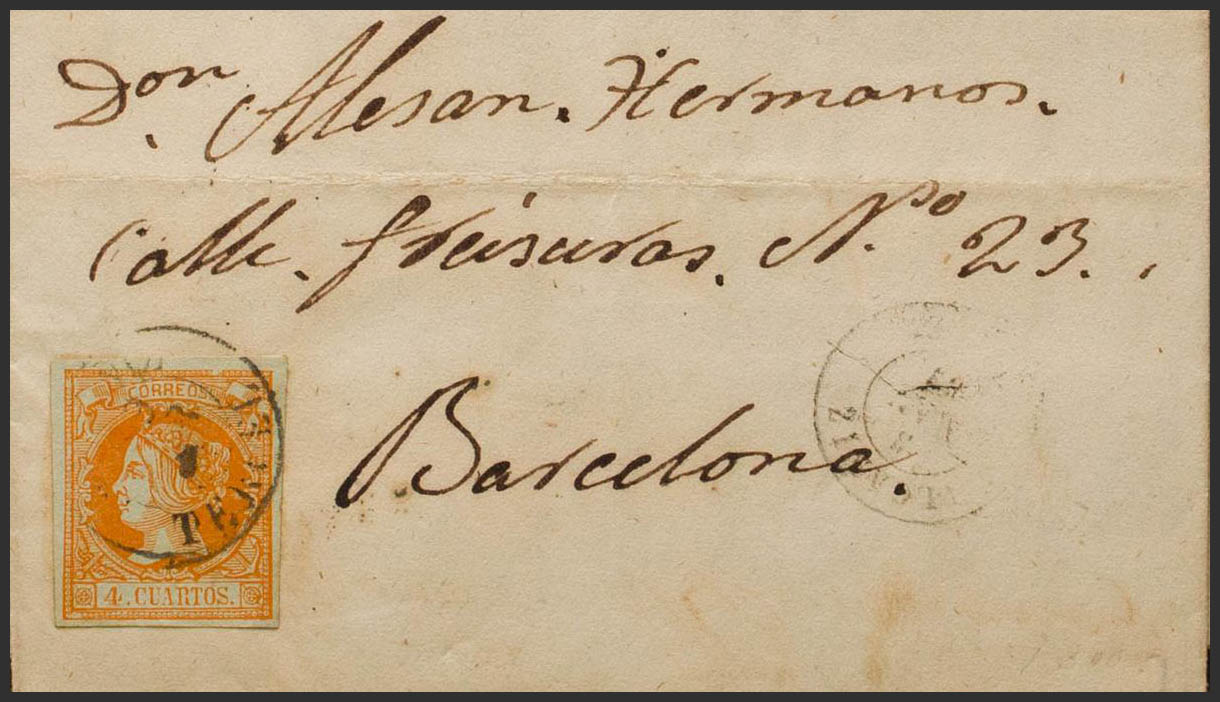 Don. Alesan. Hermanos.
Calle. freisuras. Nso 23.
Barcelona.
CORREOS
4. CUARTOS.
1
21